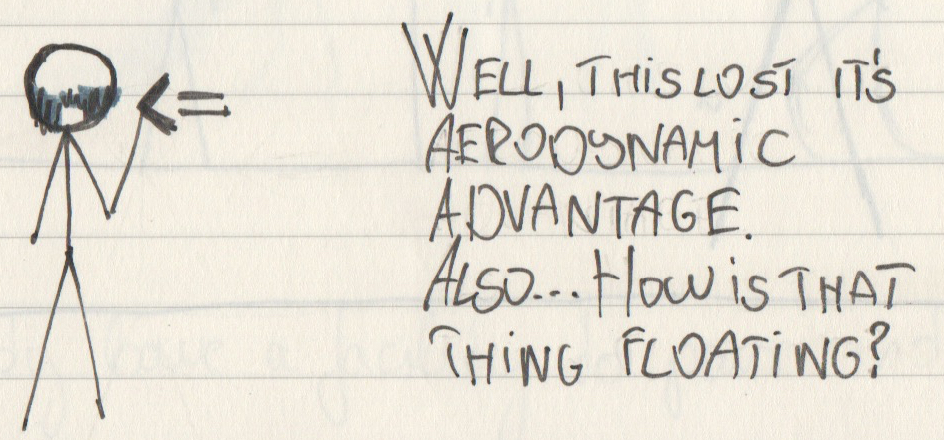 <=
WELL, THIS LOST IT'S
AERODYNAMIC
ADVANTAGE.
ALSO... HOW IS THAT
THING FLOATING?